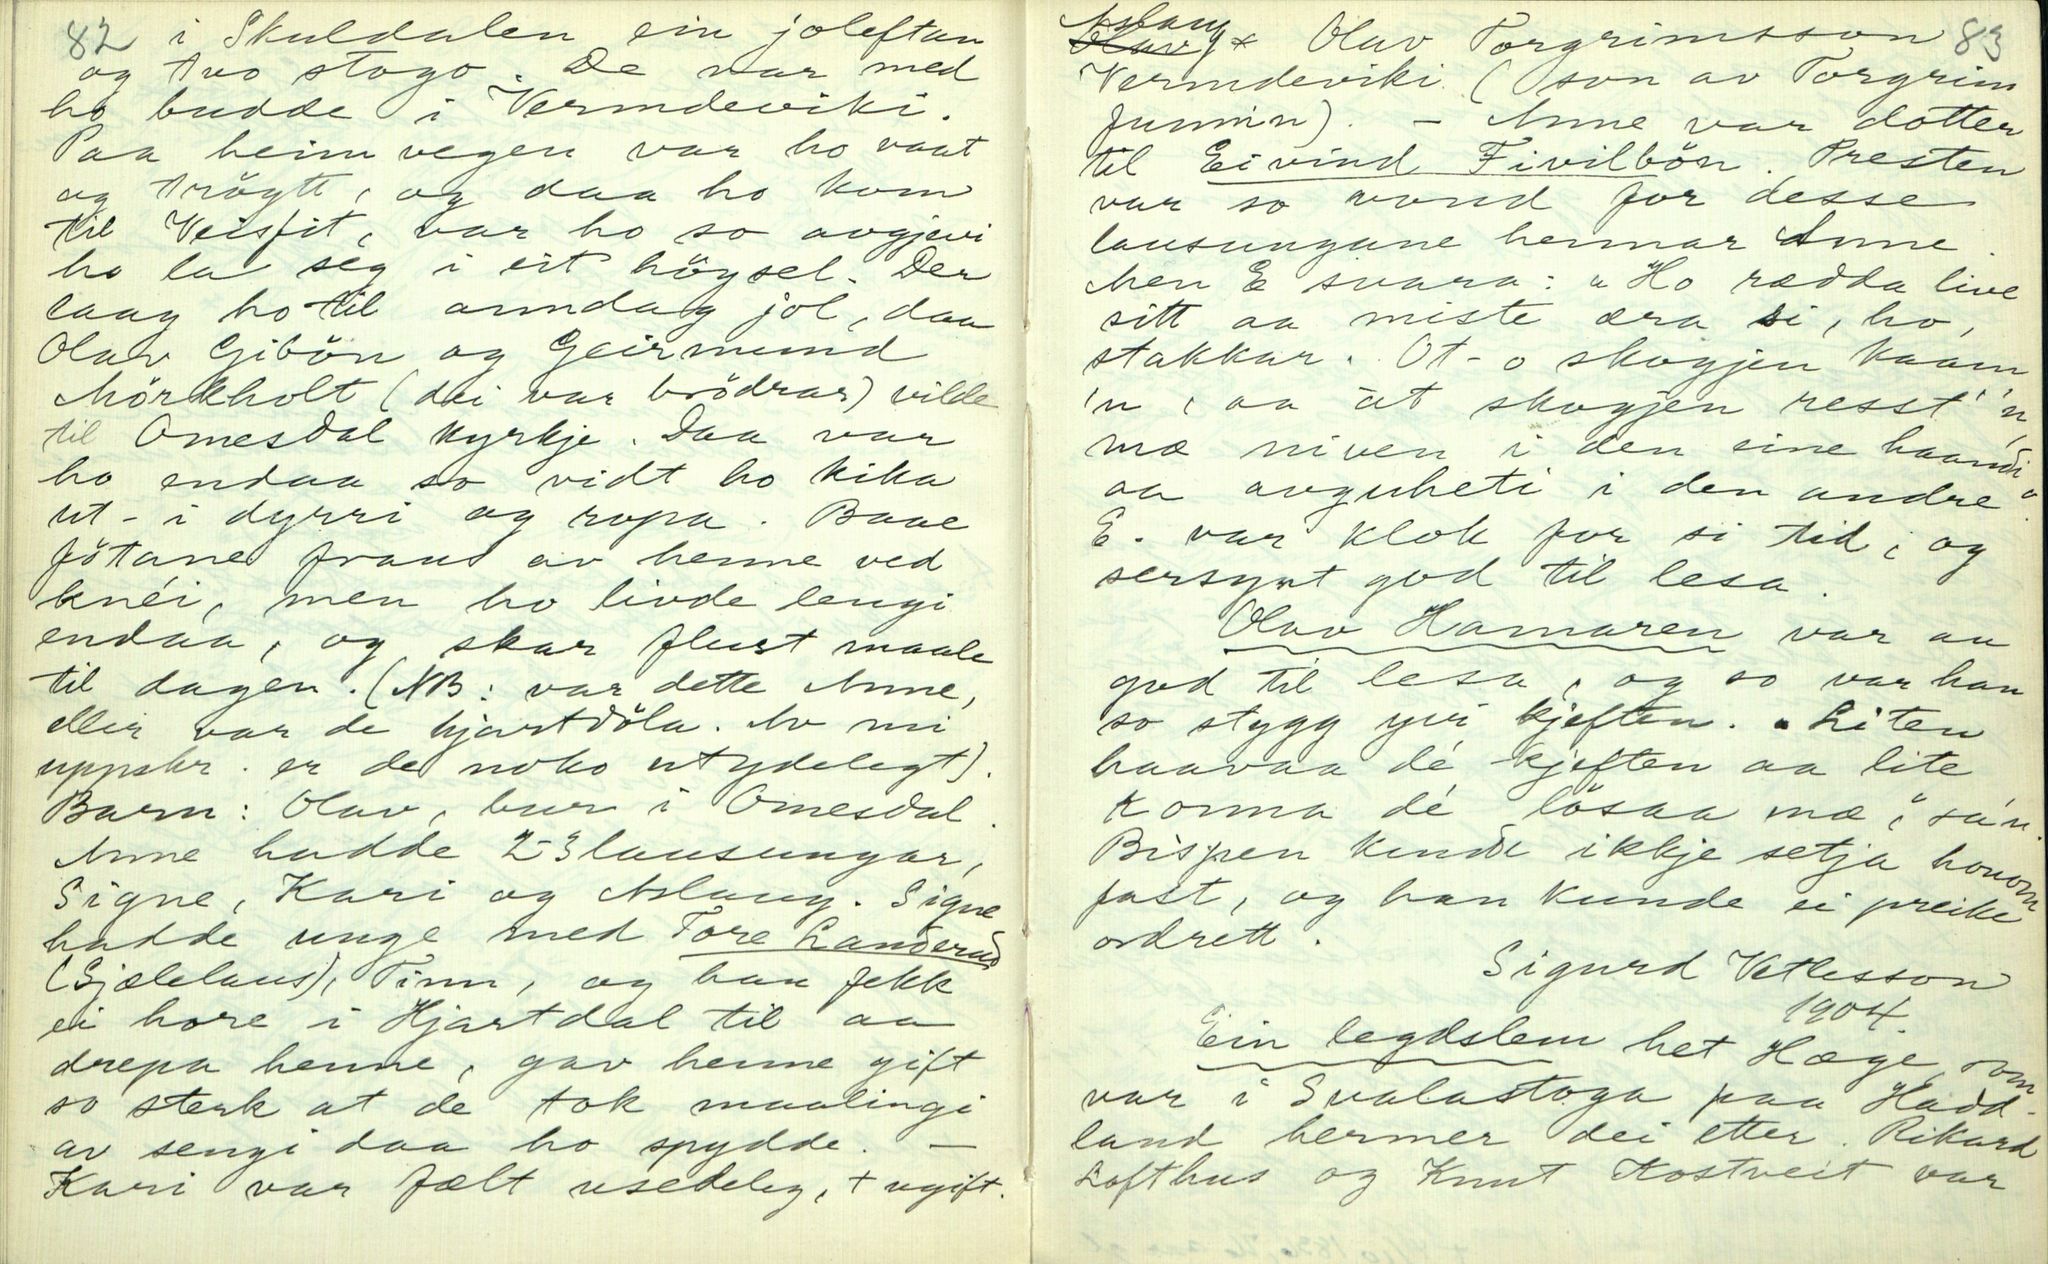 82 i Skuldalen ein joleftan
og tvo stogo. De var med
ho budde i Vermdeviki.
Paa heimvegen var ho vaat
og trøgtt, og daa ho kom
til Veisfit, var ho so avgjevi
ho la seg i eit höysel. Der
laag ho til anndag jol, daa
Olav Gibön og Geirmund
Mörkholt (dei var brödrar) vilde
til Omesdal kyrkje. Daa var
ho endaa so vidt ho kika
ut-i dyrri og ropa. Baae
fötane fraus av henne ved
knéi, men ho livde lengi
endaa, og skar fleirt maale
til dagen. (NB: var dette Anne,
eller var de hjartdöla. Av mi
uppskr. er de noko utydelegt).
Barn: Olav, bur i Omesdal.
Anne hadde 2-3 lausungar,
Signe, Kari og Aslaug. Signe
hadde unge med Tore Landsrud
(Sjælelaus), Tinn, og han fekk
ei hore i Hjartdal til aa
drepa henne, gav henne gift
so sterk at de tok maalingi
av sengi daa ho spydde. —
Kari var fælt usedeleg, + ugift.
Aslaug 83
Olav g x Olav Torgrimsson
Vermdeviki (son av Torgrim
Junnin). - Anne var dotter
til Eivind Fivilbön. Presten
var so vond for desse
lausungane hennar Anne.
Men E svara: "Ho rædda live
sitt aa miste æra si, ho,
stakkar. Ot-o skogjen kaam
'n, aa åt skogjen resst' 'n,
mæ niven i den eine haandi
aa avguheti i den andre."
E. var klok for si tid, og
sersynt god til lesa.
Olav Hamaren var aa
god til lesa, og so var han
so stygg yvi kjeften. "Liten
haavaa dé kjeften aa lite
konna dé lösaa mæ," sa'n.
Bispen kunde ikkje setja honom
fast, og han kunde ei preike
ordrett.
Sigurd Vetlesson
1904.
Ein legdslem het Hæge, som
var i Svalastoga paa Hadd-
land hermer dei etter. Rikard
Lofthus og Knut Kostveit var